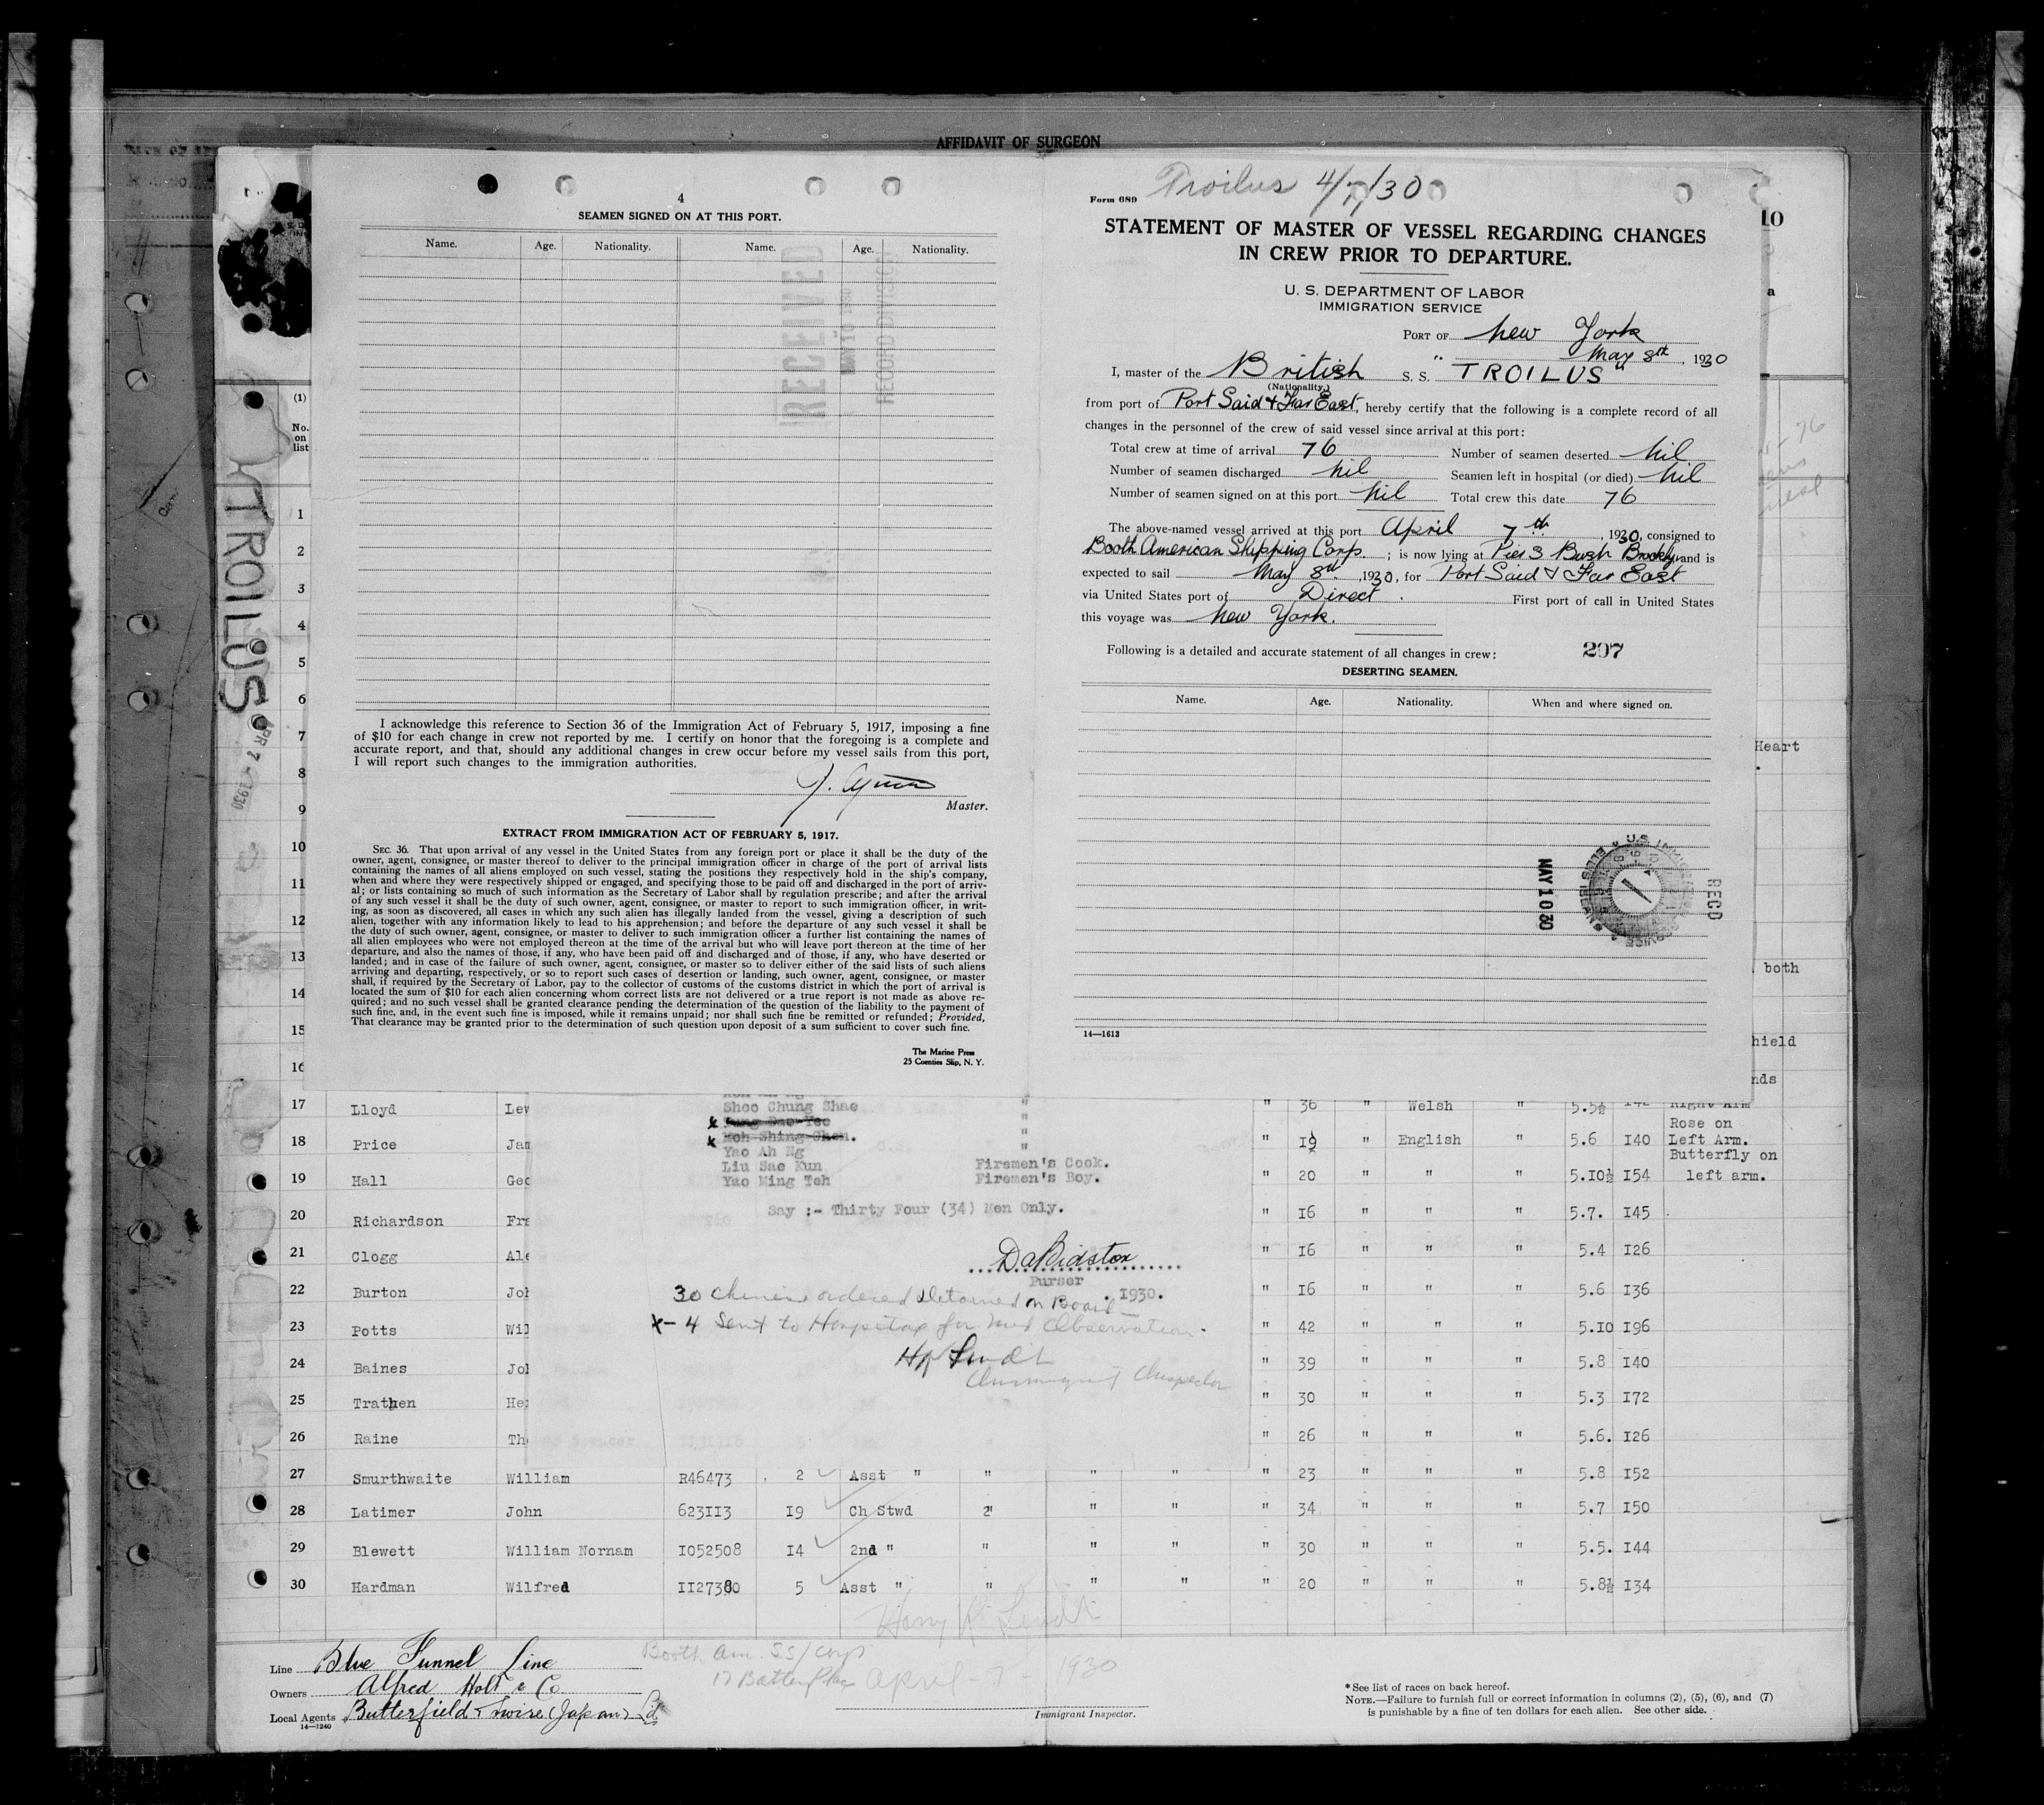 AFFIDAVIT OF SURGEON
4
SEAMEN SIGNED ON AT THIS PORT.
Name. Age. Nationality. Name. Age. Nationality.
RECEIVED
RECORD DIVISION
I acknowledge this reference to Section 36 of the Immigration Act of February 5, 1917, imposing a fine
of $10 for each change in crew not reported by me. I certify on honor that the foregoing is a complete and
accurate report, and that, should any additional changes in crew occur before my vessel sails from this port,
I will report such changes to the immigration authorities.
Master.
EXTRACT FROM IMMIGRATION ACT OF FEBRUARY 5, 1917.
SEC. 36. That upon arrival of any vessel in the United States from any foreign port or place it shall be the duty of the
owner, agent, consignee, or master thereof to deliver to the principal immigration officer in charge of the port of arrival lists
containing the names of all aliens employed on such vessel, stating the positions they respectively hold in the ship's company,
when and where they were respectively shipped or engaged, and specifying those to be paid off and discharged in the port of arriv-
al; or lists containing so much of such information as the Secretary of Labor shall by regulation prescribe; and after the arrival
of any such vessel it shall be the duty of such owner, agent, consignee, or master to report to such immigration officer, in writ-
ing, as soon as discovered, all cases in which any such alien has illegally landed from the vessel, giving a description of such
alien, together with any information likely to lead to his apprehension; and before the departure of any such vessel it shall be
the duty of such owner, agent, consignee, or master to deliver to such immigration officer a further list containing the names of
all alien employees who were not employed thereon at the time of the arrival but who will leave port thereon at the time of her
departure, and also the names of those, if any, who have been paid off and discharged and of those, if any, who have deserted or
landed; and in case of the failure of such owner, agent, consignee, or master so to deliver either of the said lists of such aliens
arriving and departing, respectively, or so to report such cases of desertion or landing, such owner, agent, consignee, or master
shall, if required by the Secretary of Labor, pay to the collector of customs of the customs district in which the port of arrival is
located the sum of $10 for each alien concerning whom correct lists are not delivered or a true report is not made as above re-
quired; and no such vessel shall be granted clearance pending the determination of the question of the liability to the payment of
such fine, and, in the event such fine is imposed, while it remains unpaid; nor shall such fine be remitted or refunded; Provided,
That clearance may be granted prior to the determination of such question upon deposit of a sum sufficient to cover such fine.
The Marine Press
25 Coenties Slip, N. Y.
Troilus 4/7/30
Form 689
STATEMENT OF MASTER OF VESSEL REGARDING CHANGES
IN CREW PRIOR TO DEPARTURE.
U. S. DEPARTMENT OF LABOR
IMMIGRATION SERVICE
PORT OF New York
May 8th, 1930
I, master of the British S. S. "TROILUS"
(Nationality.)
from port of Port Said & Far East, hereby certify that the following is a complete record of all
changes in the personnel of the crew of said vessel since arrival at this port:
Total crew at time of arrival 76 Number of seamen deserted Nil
Number of seamen discharged Nil Seamen left in hospital (or died) Nil
Number of seamen signed on at this port Nil Total crew this date 76
The above-named vessel arrived at this port April 7th, 1930, consigned to
Booth American Shipping Corp.; is now lying at Pier 3 Bush Brooklyn and is
expected to sail May 8th, 1930, for Port Said & Far East
via United States port of Direct. First port of call in United States
this voyage was New York.
Following is a detailed and accurate statement of all changes in crew: 297
DESERTING SEAMEN.
Name. Age. Nationality. When and where signed on.
MAY 10 30
RECD
14—1613
10
a
Heart
both
hield
nds
TROILUS
APR 7 - 1930
(1)
No.
on
list
1
2
3
4
5
6
7
8
9
10
11
12
13
14
15
16
17 Lloyd Lew " 36 " Welsh " 5.5½ 142 Right Arm
18 Price Jam " 19 " English " 5.6 140 Rose on
Left Arm.
19 Hall Geo " 20 " " " 5.10½ 154 Butterfly on
left arm.
20 Richardson Fra " 16 " " " 5.7. 145
21 Clogg Ale " 16 " " " 5.4 126
22 Burton Joh " 16 " " " 5.6 136
23 Potts Wil " 42 " " " 5.10 196
24 Baines Joh " 39 " " " 5.8 140
25 Trathen He " 30 " " " 5.3 172
26 Raine Th " 26 " " " 5.6. 126
27 Smurthwaite William R46473 2 Asst " " " " " 23 " " " 5.8 152
28 Latimer John 623113 19 Ch Stwd 2" " " " 34 " " " 5.7 150
29 Blewett William Nornam 1052508 14 2nd " " " " " 30 " " " 5.5. 144
30 Hardman Wilfred 1127380 5 Asst " " " " " 20 " " " 5.8½ 134
Shoo Chung Shae "
Yao Ah Ng "
Liu Sae Kun Firemen's Cook.
Yao Ming Teh Firemen's Boy.
Say :- Thirty Four (34) Men Only.
Purser
. 1930.
30 Chinese ordered detained on Board
X- 4 Sent to Hospital for Med Observation.
Immigrant Inspector
Blue Funnel Line
Line
Owners Alfred Holt & Co
Local Agents Butterfield & Swire (Japan) Ld
14—1240
Booth Am. SS/Corp
17 Battery Place April - 7 - 1930
Immigrant Inspector.
*See list of races on back hereof.
NOTE.—Failure to furnish full or correct information in columns (2), (5), (6), and (7)
is punishable by a fine of ten dollars for each alien. See other side.